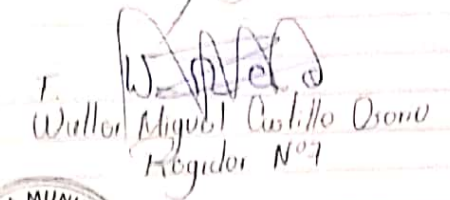 Miguel Castillo Osorio
Regidor Nº7
MUNI